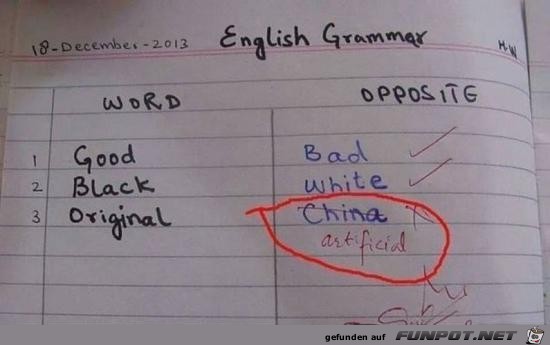 18-December-2013 English Grammar H.W
WORD OPPOSITE
1 Good Bad
2 Black White
3 Original China
artificial
gefunden auf FUNPOT.NET